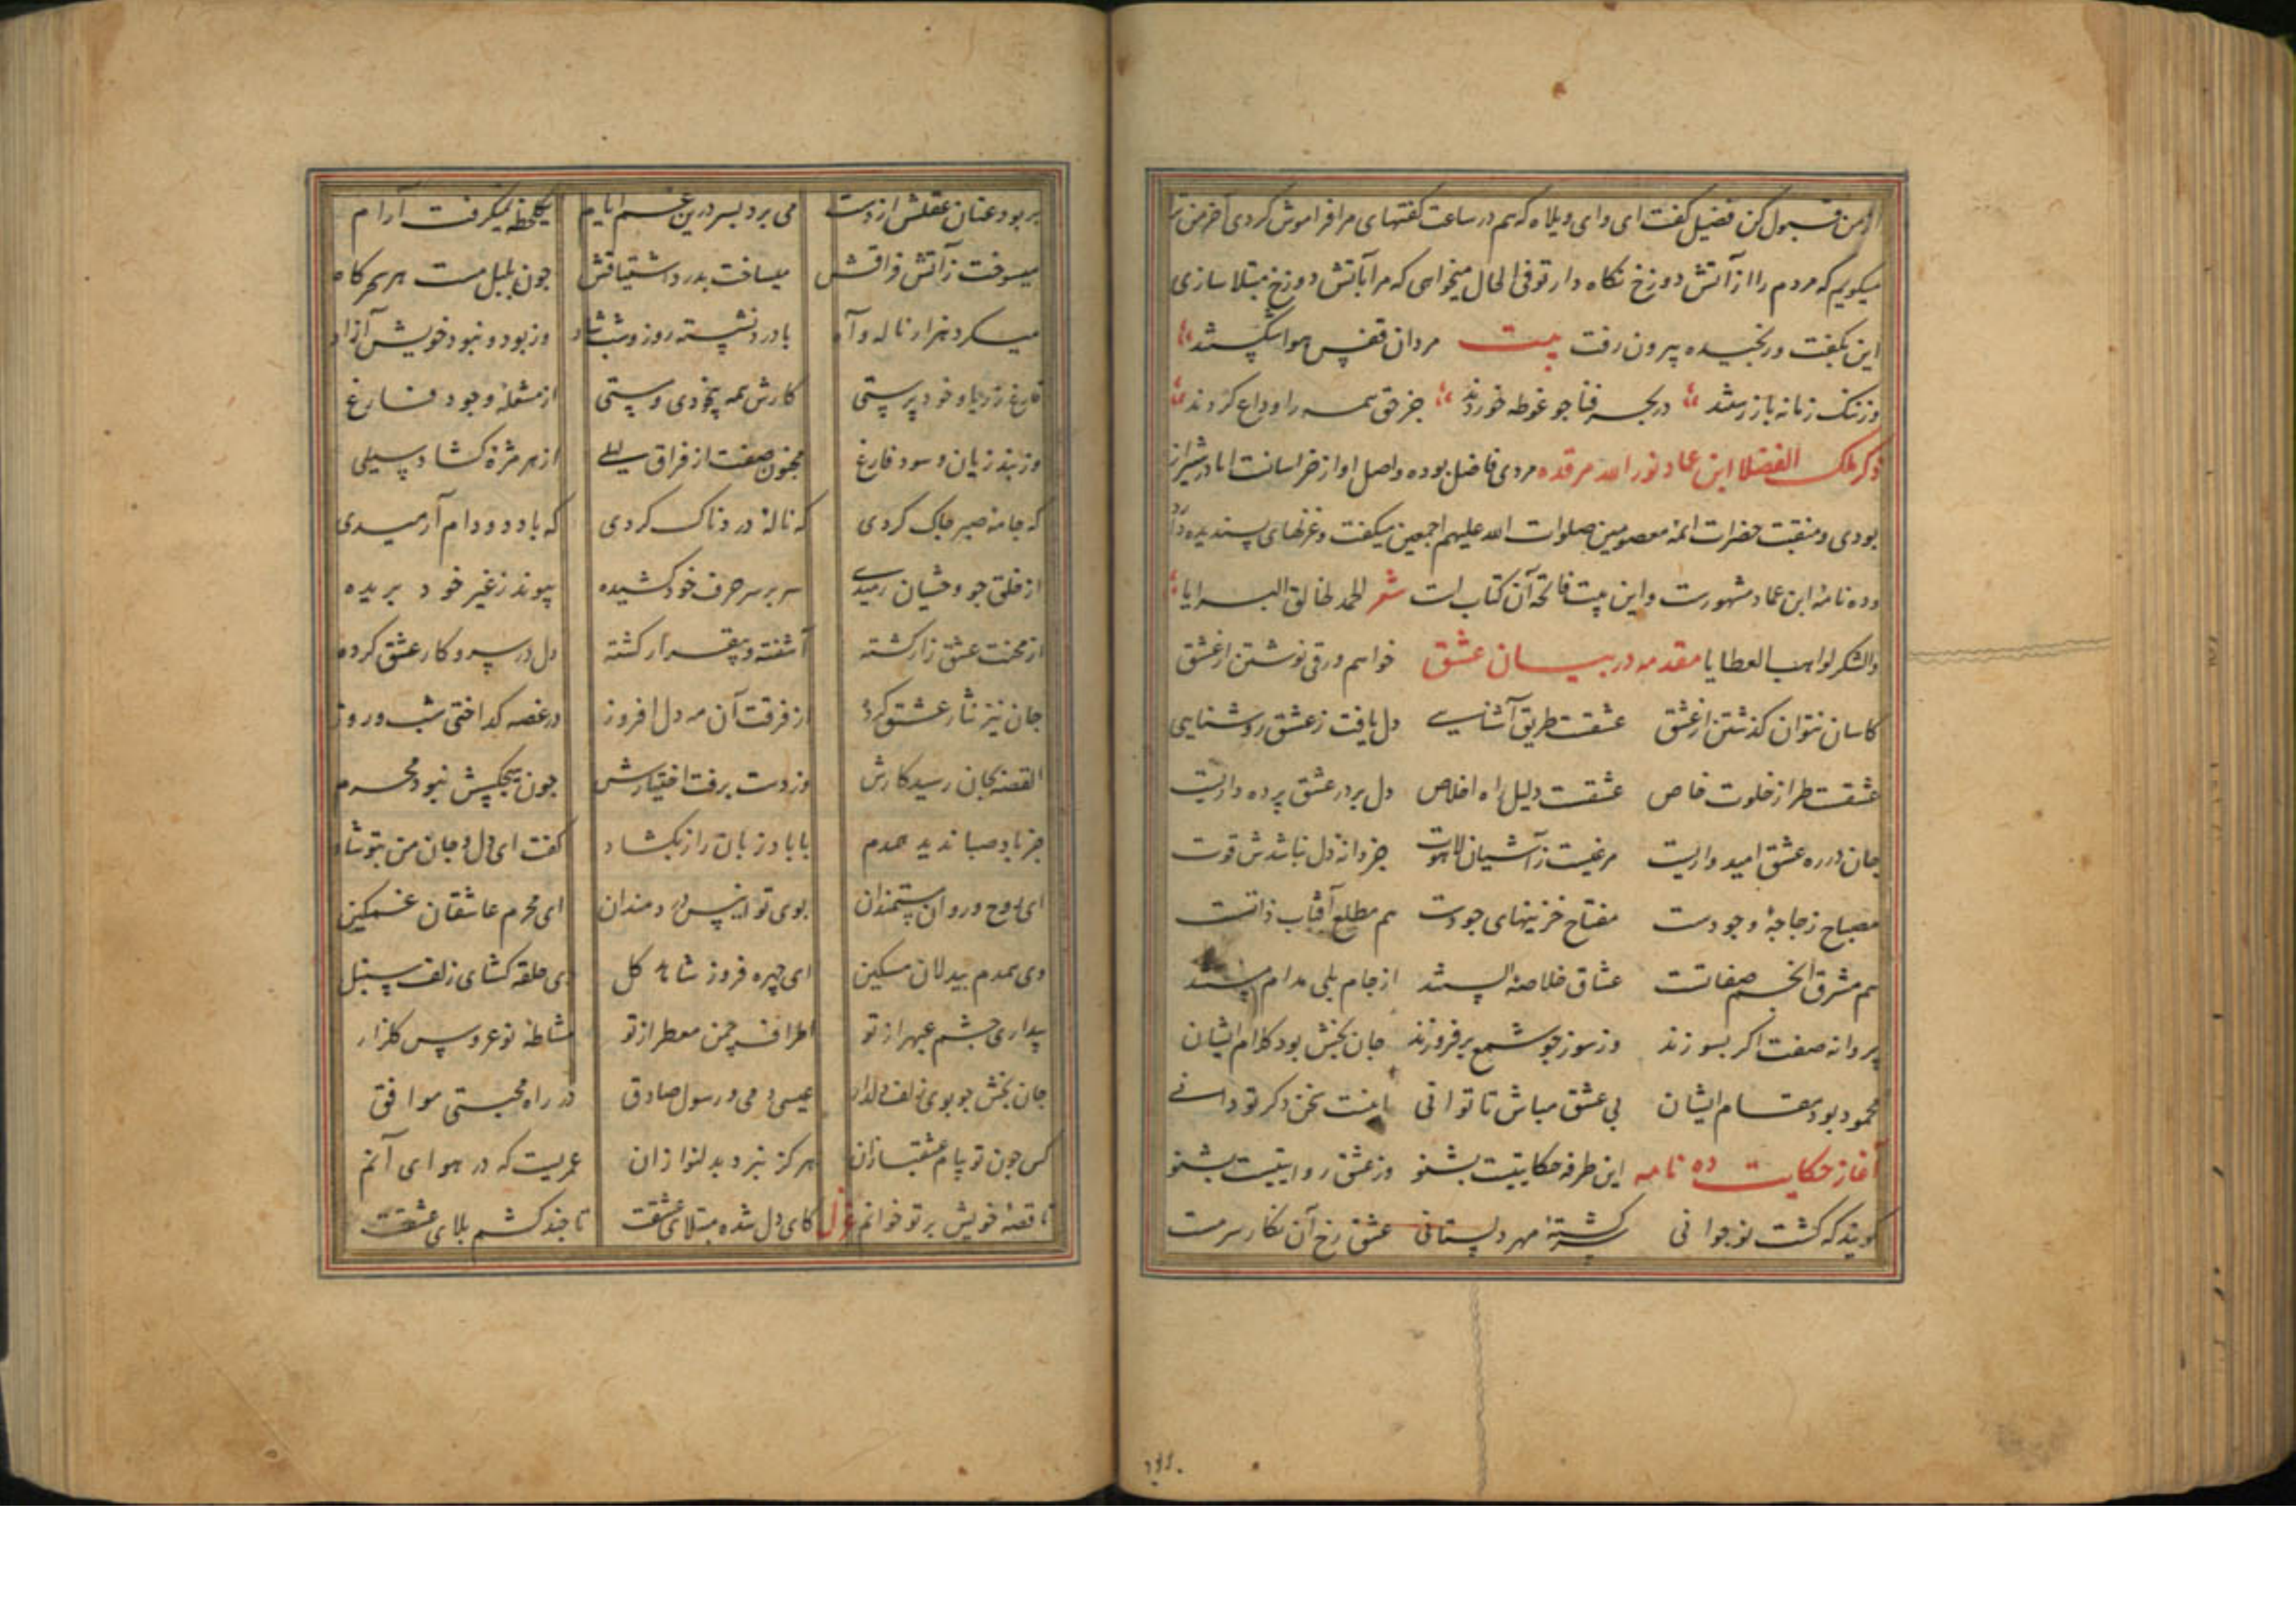 از من قبول کن فضیل گفت ای وای ویلاه که هم در ساعت گفتهای مرا فراموش کردی آخر من ترا
میکویم که مردم را از آتش دوزخ نکاه دار تو فی الحال میخواهی که مرا بآتش دوزخ مبتلا سازی
این بگفت و رنجیده بیرون رفت بیت مردان قفس هوا شکستند
وز ننک زمانه باز رستند در بحر فنا جو غوطه خوردند جز حق همه را وداع کردند
ذکر ملک الفضلا ابن عماد نور الله مرقده مردی فاضل بوده و اصل او از خراسانت اما در شیراز
بودی و منقبت حضرات ائمهٔ معصومین صلوات الله علیهم اجمعین میکفت و غزلهای پسندیده دارد
و ده نامهٔ ابن عماد مشهورست و این بیت فاتحه آن کتاب است شعر الحمد لخالق البرایا
والشکر لواهب العطایا مقدمه در بیان عشق خواهم ورقی نوشتن از عشق
کاسان نتوان کذشتن از عشق عشقت طریق آشنایی دل یافت ز عشق روشنایی
عشقت طراز خلوت خاص عشقت دلیل راه اخلاص دل بر در عشق پرده داریت
جان در ره عشق امیدواریت مرغیست ز آشیان لاهوت جز دانهٔ دل نباشدش قوت
مصباح زجاجهٔ وجودست مفتاح خزینهای جودست هم مطلع آفتاب ذاتست
هم مشرق انجم صفاتست عشاق خلاصهٔ الستند از جام بلی مدام مستند
پروانه صفت اکر بسوزند وز سوز جو شمع برفروزند جان بخش بود کلام ایشان
محمود بود مقام ایشان بی عشق مباش تا توانی اینست سخن دکر تو دانی
آغاز حکایت ده نامه این طرفه حکایتیت بشنو وز عشق روایتیت بشنو
کویند که کشت نوجوانی سرکشتهٔ مهر دلستانی عشق رخ آن نکار سرمست
بربود عنان عقلش از دست می برد بسر درین غم ایام یکلحظه نمیکرفت آرام
میسوخت ز آتش فراقش میساخت بدرد اشتیاقش جون بلبل مست هر سحرکاه
میکرد هزار ناله و آه با درد نشسته روز و شب شاد وز بود و نبود خویش آزاد
فارغ ز ریا و خود پرستی کارش همه بیخودی و مستی از مشغلهٔ وجود فارغ
وز بند زیان و سود فارغ مجنون صفت از فراق لیلی از هر مژه کشاد سیلی
که جامهٔ صبر جاک کردی که نالهٔ دردناک کردی که با دد و دام آرمیدی
از خلق جو وحشیان رمیدی سر بر سر حرف خود کشیده پیوند ز غیر خود بریده
از محنت عشق زار کشته آشفته و بیقرار کشته دل در سر و کار عشق کرده
جان نیز نثار عشق کرده از فرقت آن مه دل افروز در غصه کداختی شب و روز
القصه بجان رسید کارش وز دست برفت اختیارش جون هیچکسش نبود محرم
جز باد صبا ندید همدم با باد زبان راز بکشاد کفت ای دل و جان من بتو شاد
ای روح و روان مستمندان بوی تو انیس دردمندان ای محرم عاشقان غمکین
وی همدم بیدلان مسکین ای چهره فروز شاهد کل وی حلقه کشای زلف سنبل
بیداری چشم عبهر از تو اطراف چمن معطر از تو مشاطهٔ نوعروس کلزار
جان بخش جو بوی زلف دلدار عیسی دمی و رسول صادق در راه محبتی موافق
کس جون تو پیام عشقبازان هرکز نبرد بدلنوازان عمریست که در هوای آنم
تا قصهٔ خویش بر تو خوانم غزل کای دل شده مبتلای عشقت تا جند کشم بلای عشقت